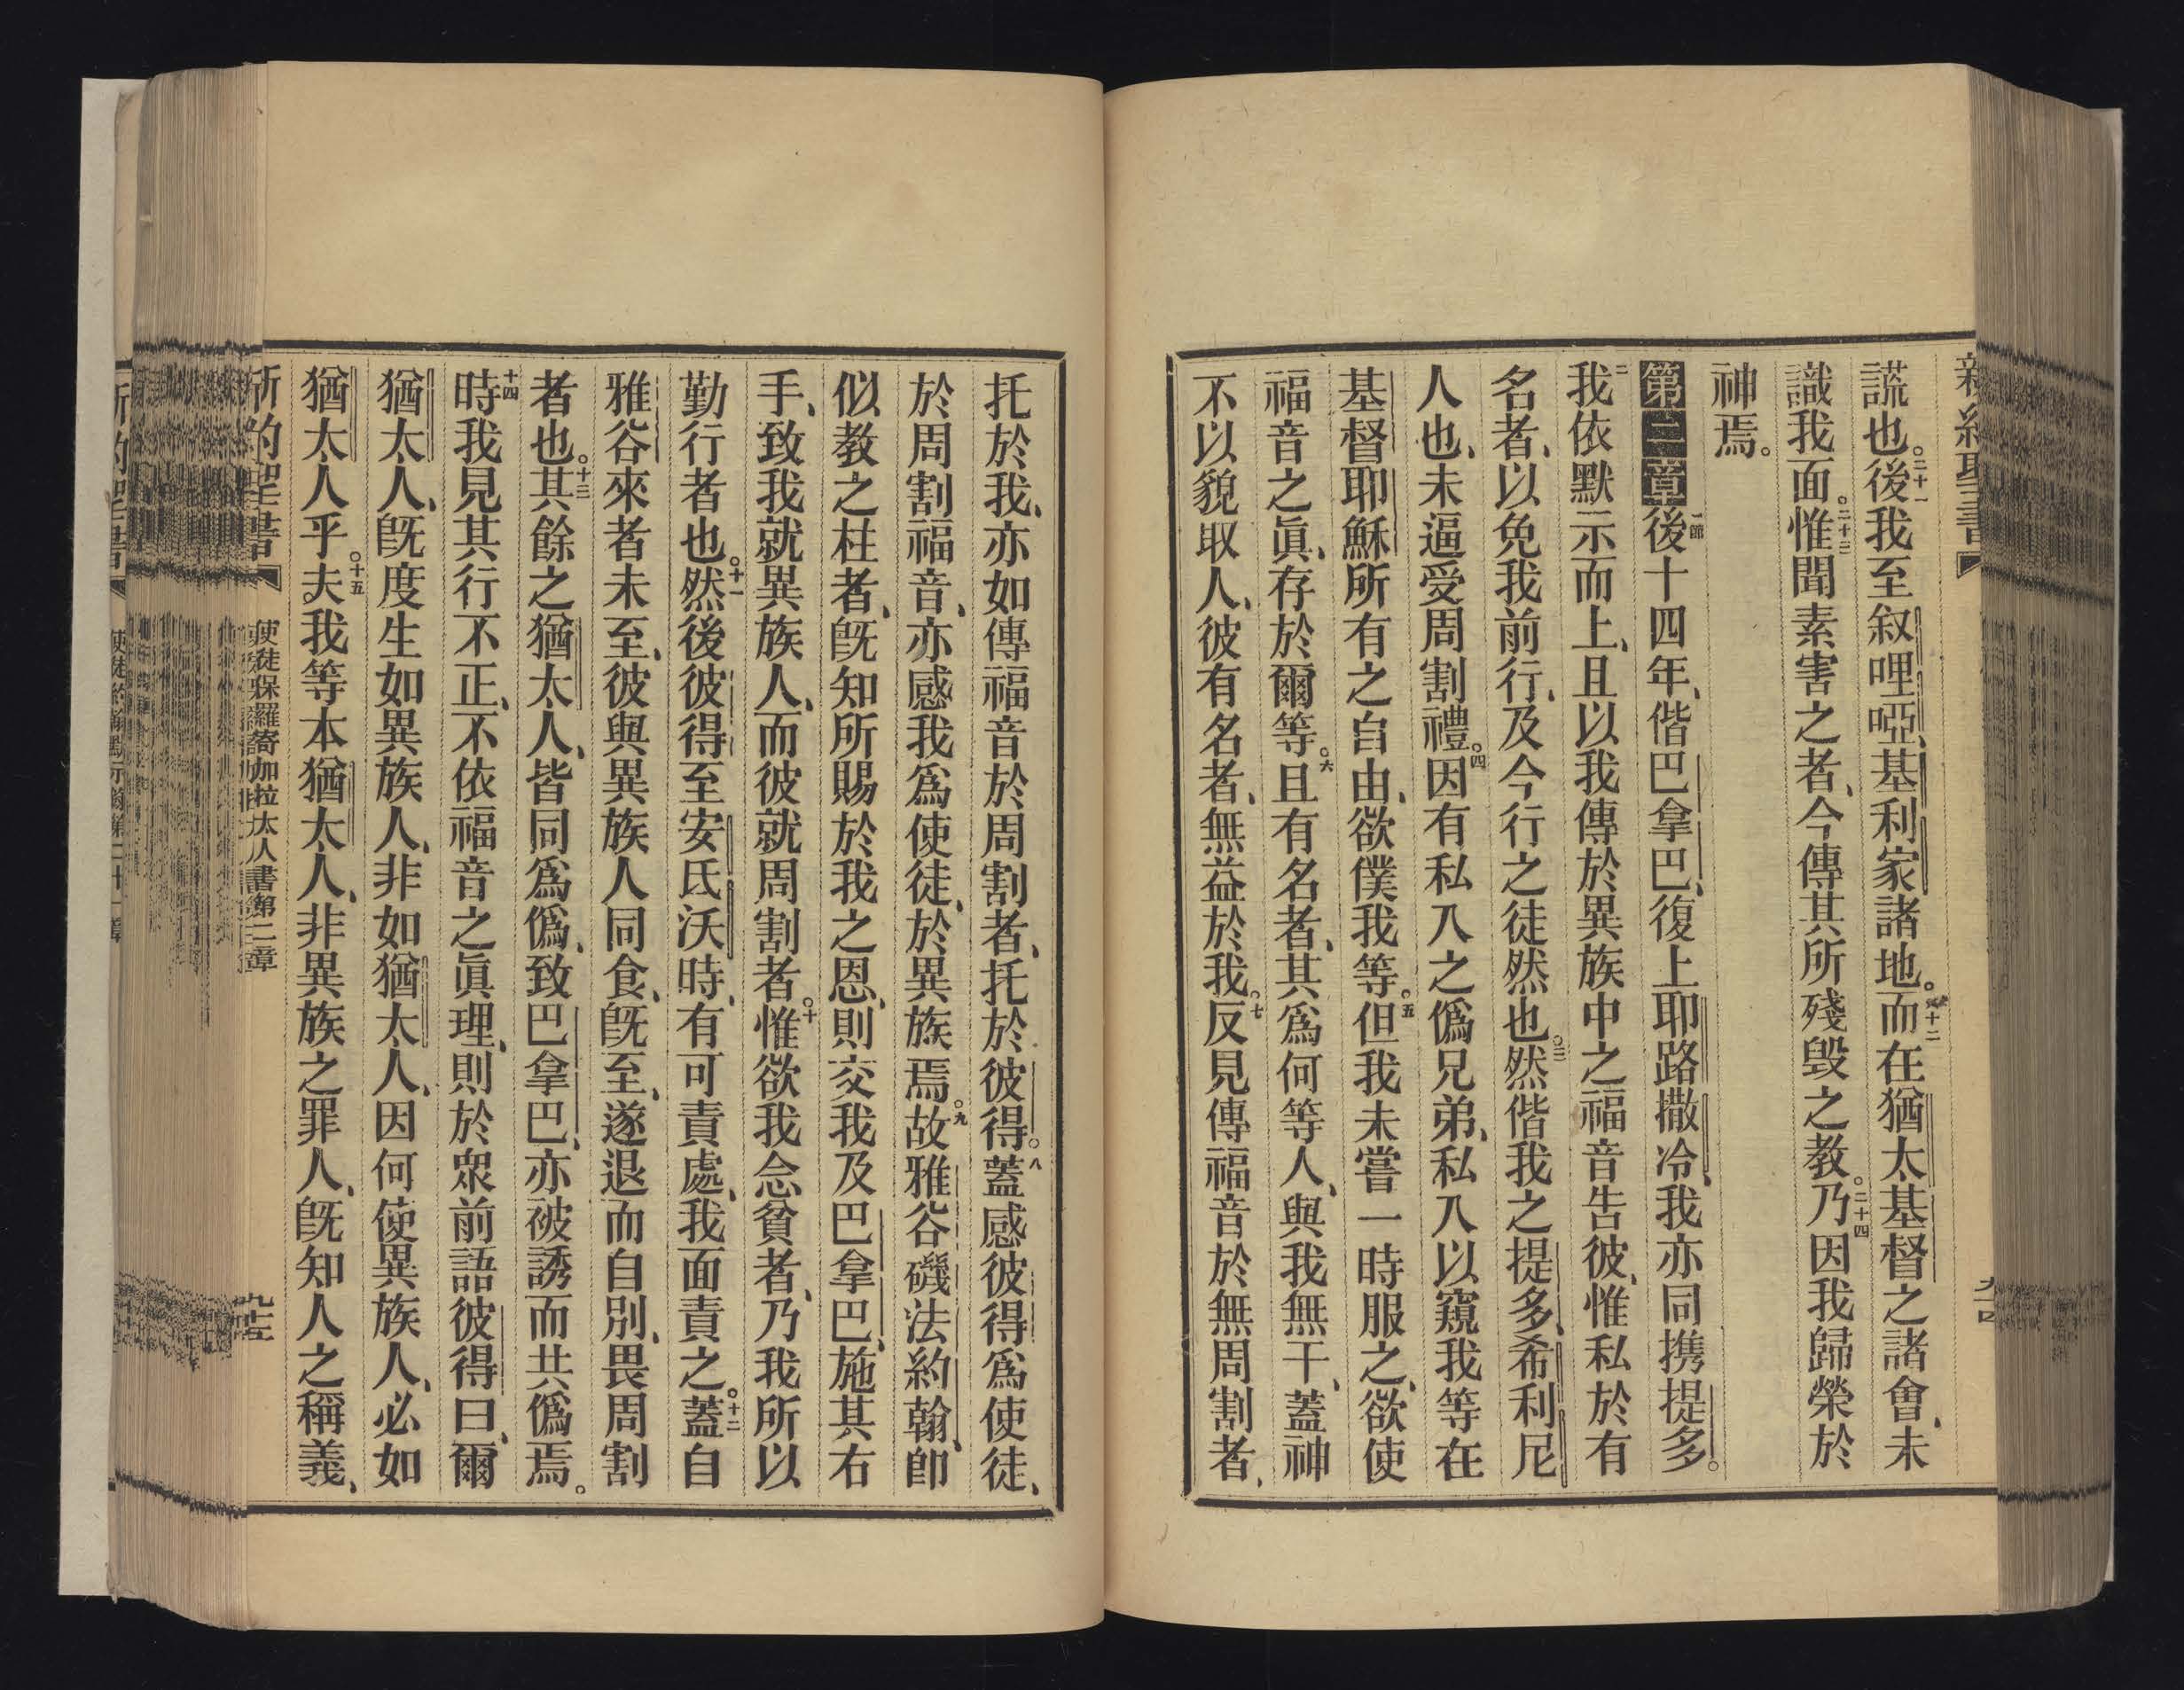 謊也。二十一後我至叙哩啞、基利家諸地。二十二而在猶太基督之諸會、未
識我面。二十三惟聞素害之者、今傳其所殘毀之教。二十四乃因我歸榮於
神焉。
第二章一節後十四年、偕巴拿巴、復上耶路撒冷、我亦同携提多。
二我依默示而上、且以我傳於異族中之福音告彼、惟私於有
名者、以免我前行、及今行之徒然也。三然偕我之提多、希利尼
人也、未逼受周割禮。四因有私入之僞兄弟、私入以窺我等在
基督耶穌所有之自由、欲僕我等。五但我未嘗一時服之、欲使
福音之眞、存於爾等。六且有名者、其爲何等人、與我無干、蓋神
不以貌取人、彼有名者、無益於我。七反見傳福音於無周割者、
托於我、亦如傳福音於周割者、托於彼得。八蓋感彼得爲使徒、
於周割福音、亦感我爲使徒、於異族焉。九故雅谷磯法約翰、卽
似教之柱者、旣知所賜於我之恩、則交我及巴拿巴、施其右
手、致我就異族人、而彼就周割者。十惟欲我念貧者、乃我所以
勤行者也。十一然後彼得至安氏沃時、有可責處、我面責之。十二蓋自
雅谷來者未至、彼與異族人同食、旣至、遂退而自別、畏周割
者也。十三其餘之猶太人、皆同爲僞、致巴拿巴、亦被誘而共僞焉。
十四時我見其行不正、不依福音之眞理、則於眾前語彼得曰、爾
猶太人、旣度生如異族人、非如猶太人、因何使異族人、必如
猶太人乎。十五夫我等本猶太人、非異族之罪人、旣知人之稱義、
新約聖書 使徒保羅寄加拉太人書第二章